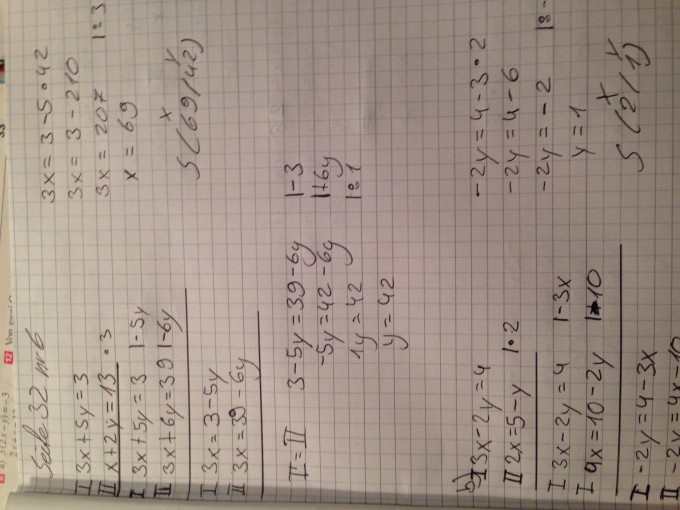 Seite 32 nr 6
I 3x+5y=3
II x+2y=13 ·3
I 3x+5y=3 |-5y
II 3x+6y=39 |-6y
I 3x=3-5y
II 3x=39-6y
I=II 3-5y=39-6y |-3
-5y=42-6y |+6y
1y=42 |:1
y=42
3x=3-5·42
3x=3-210
3x=207 |:3
x=69
x y
S(69/42)
b) I 3x-2y=4
II 2x=5-y |·2
I 3x-2y=4 |-3x
I 4x=10-2y |-10
I -2y=4-3x
II -2y=4x-10
-2y=4-3·2
-2y=4-6
-2y=-2 |:-
y=1
x y
S(2/1)